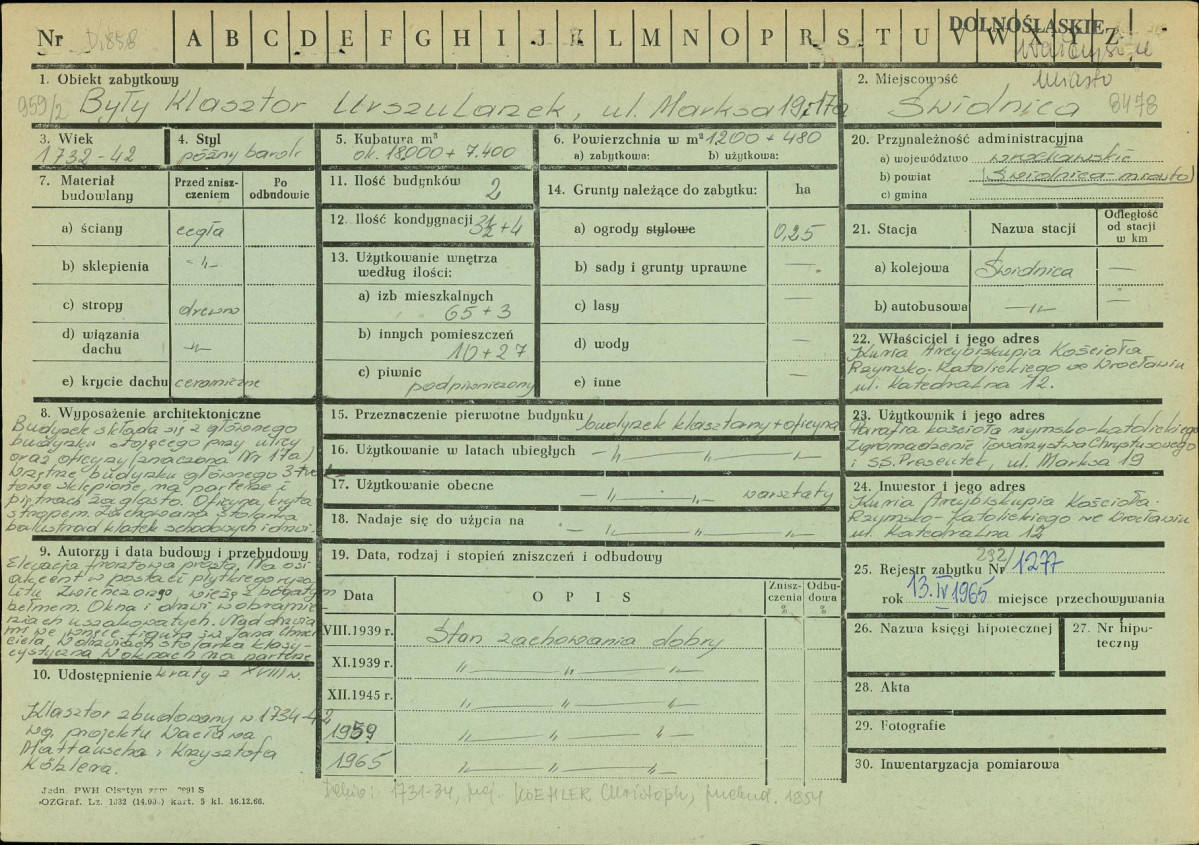 Nr D/858 A B C D E F G H I J K L M N O P R S T U V W X Y Z
DOLNOŚLĄSKIE
miasto
1. Obiekt zabytkowy
959/2 Były Klasztor Urszulanek, ul. Marksa 19 i 17a
2. Miejscowość
Świdnica 8478
3. Wiek
1732-42
4. Styl
późny barok
5. Kubatura m³
ok. 18000 + 7.400
6. Powierzchnia w m² 1200 + 480
a) zabytkowa: b) użytkowa:
7. Materiał budowlany
Przed zniszczeniem
Po odbudowie
a) ściany cegła
b) sklepienia -"-
c) stropy drewno
d) wiązania dachu -"-
e) krycie dachu ceramiczne
11. Ilość budynków 2
12. Ilość kondygnacji 3 1/2 + 4
13. Użytkowanie wnętrza według ilości:
a) izb mieszkalnych
65 + 3
b) innych pomieszczeń
10 + 27
c) piwnic
podpiwniczony
14. Grunty należące do zabytku: ha
a) ogrody stylowe 0,25
b) sady i grunty uprawne —
c) lasy —
d) wody —
e) inne —
20. Przynależność administracyjna
a) województwo wrocławskie
b) powiat Świdnica-miasto
c) gmina
21. Stacja
Nazwa stacji
Odległość od stacji w km
a) kolejowa Świdnica —
b) autobusowa -"- —
22. Właściciel i jego adres
Kuria Arcybiskupia Kościoła
Rzymsko-Katolickiego we Wrocławiu
ul. Katedralna 12.
8. Wyposażenie architektoniczne
Budynek składa się z głównego
budynku stojącego przy ulicy
oraz oficyny /znaczona Nr 17a/
Wnętrze budynku głównego 3-trak
towe sklepione, na parterze i
piętrach żaglasto. Oficyna kryta
stropem. Zachowana stolarka
balustrad klatek schodowych i drzwi.
15. Przeznaczenie pierwotne budynku budynek klasztorny + oficyna
16. Użytkowanie w latach ubiegłych — " — " —
17. Użytkowanie obecne — " — " — warsztaty
18. Nadaje się do użycia na — " — " —
23. Użytkownik i jego adres
Parafia kościoła rzymsko-katolickiego
Zgromadzenie Towarzystwa Chrystusowego
i SS. Prezentek, ul. Marksa 19
24. Inwestor i jego adres
Kuria Arcybiskupia Kościoła
Rzymsko-Katolickiego we Wrocławiu
ul. Katedralna 12
9. Autorzy i data budowy i przebudowy
Elewacja frontowa prosta. Na osi
akcent w postaci płytkiego ryza
litu zwieńczonego wieżą z bogatym
hełmem. Okna i drzwi w obramie-
niach uszakowatych. Nad drzwia
mi we wnęce figura św. Jana Chrzci
ciela. W drzwiach stolarka klasy-
cystyczna. W oknach na parterze
10. Udostępnienie kraty z XVIII w.
Klasztor zbudowany w 1734-42
wg. projektu Wacława
Mattauscha i Krzysztofa
Köhlera.
19. Data, rodzaj i stopień zniszczeń i odbudowy
Data OPIS Zniszczenia % Odbudowa %
VIII.1939 r. Stan zachowania dobry
XI.1939 r. " — " — "
XII.1945 r. " — " — "
1959 " — " — "
1965 " — " — "
25. Rejestr zabytku Nr 232/1277
rok 13.IV 1965 miejsce przechowywania
26. Nazwa księgi hipotecznej
27. Nr hipoteczny
28. Akta
29. Fotografie
30. Inwentaryzacja pomiarowa
Jedn. PWH Olsztyn zam. 2091 S
OZGraf. Lz. 1332 (14.00) kart. 5 kl. 16.12.66.
Dehio: 1731-34, proj. KOEHLER Christoph, przebud. 1854